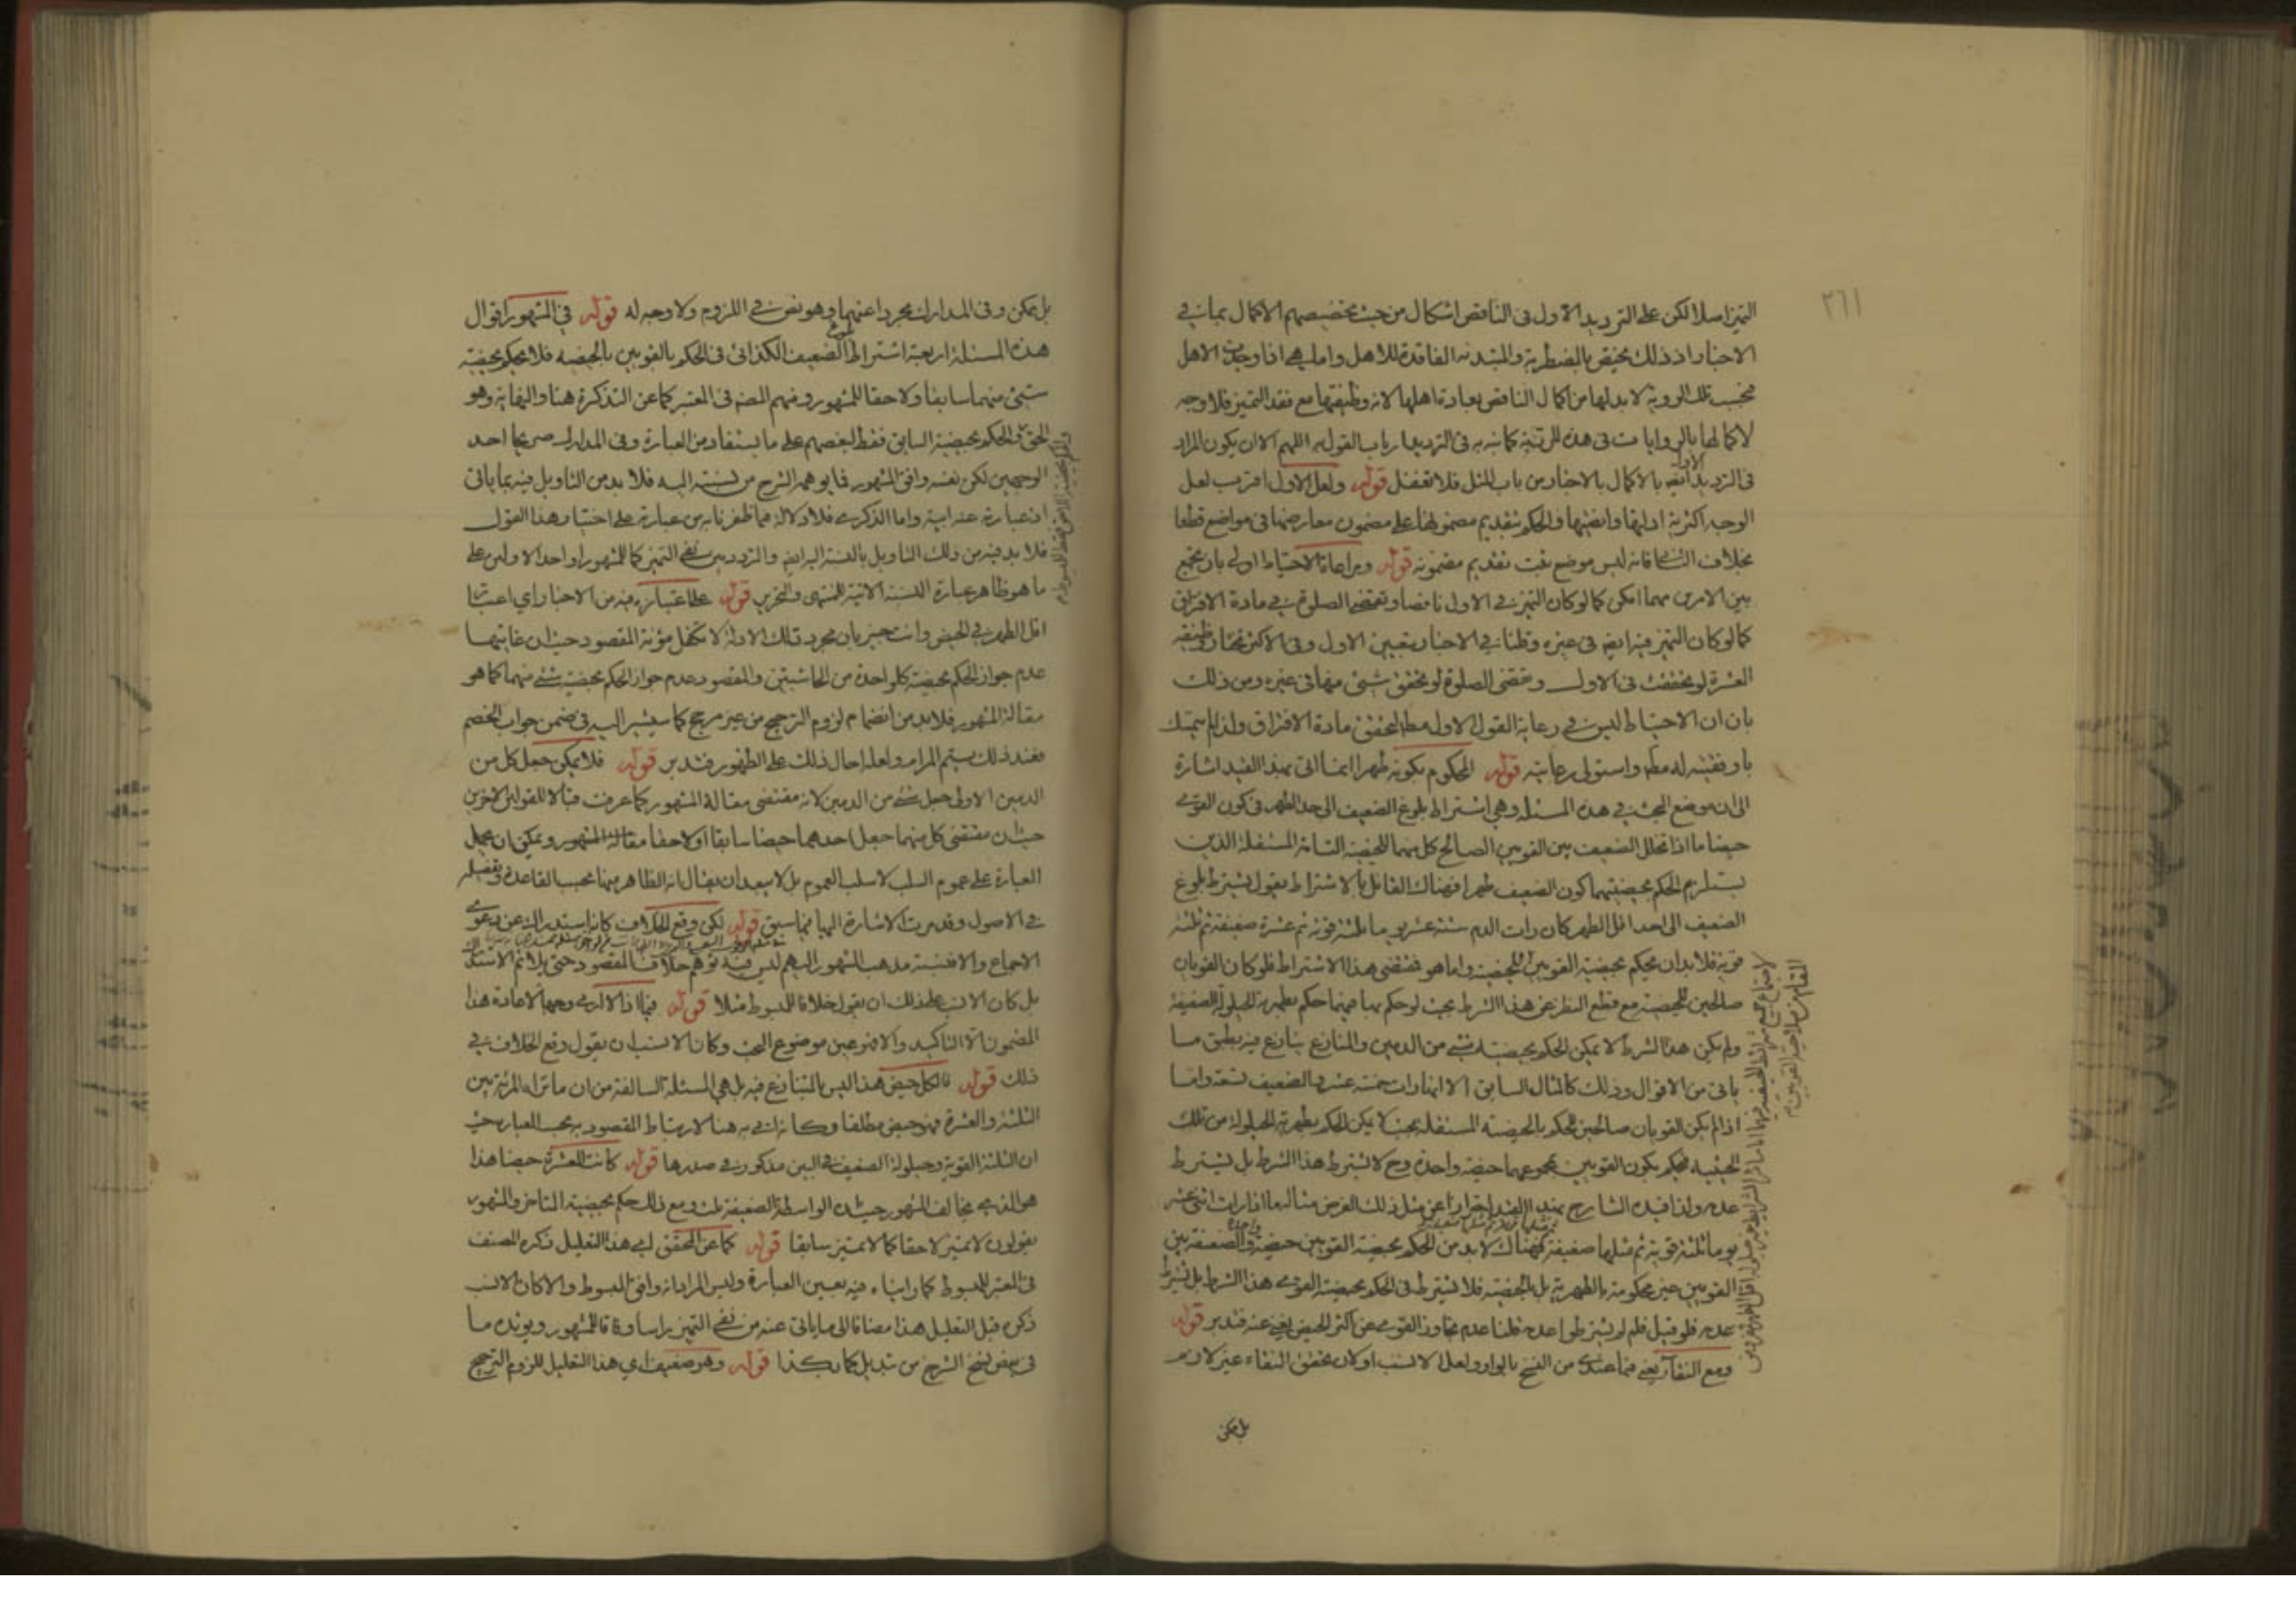 ٢٦١
التميز اصلا لكن على الترديد الاول فى الناقص اشكال من حيث تخصيصهم الاكمال بما فى
الاخبار اذ ذلك يختص بالمضطربة والمبتدئه الفاقدة للاهل واما هى اذا وجدت الاهل
فبحسب تلك الروية لا بد لها من اكمال الناقص بعادة اهلها لانه وظيفتها مع فقد التميز فلا وجه
لاكمالها بالروايات فى هذه المرتبة كما نبه به فى الترديد ارباب القول به اللهم الا ان يكون المراد
فى الترديد الاول ايضه بالاكمال بالاخبار من باب المثل فلا تغفل قوله ولعل الاول اقرب لعل
الوجه اكثرية ادلتها وانصيتها والحكم بتقديم مضمونها على مضمون معارضها فى مواضع قطعا
بخلاف الثانى فانه ليس موضع ثبت تقديم مضمونه قوله ومراعاة الاحتياط اولى بان يجمع
بين الامرين مهما امكن كما لو كان التميز فى الاول ناقصا وتقضى الصلوة فى مادة الافتراق
كما لو كان التميز فيه ايضه فى عشرة وظننا فى الاخبار بتعيين الاول وفى الاكثر تختار وظيفة
العشرة لو تحققت فى الاول وتقضى الصلوة لو تحقق شئ منها فى غيره ومن ذلك
بان ان الاحتياط ليس فى رعاية القول الاول مطلقا لتحقق مادة الافتراق ولذا لم يتمسك
باوفقيته له مطه واستولى رعايته قوله المحكوم بكونه طهرا انما اتى بهذا القيد اشارة
الى ان موضع البحث فى هذه المسئلة وهى اشتراط بلوغ الضعيف الى حد الطهر فى كون القوى
حيضا ما اذا تخلل الضعيف بين القويين الصالح كل منهما للحيضية التامة المستقلة الذين
يستلزم الحكم بحيضيتهما كون الضعيف طهرا فهناك القائل بالاشتراط يقول يشترط بلوغ
الضعيف الى حد اقل الطهر كان رات الدم ستة عشر يوما ثلثة قوية ثم عشرة ضعيفة ثم ثلثة
قوية فلا بد ان يحكم بحيضية القويين للحيضية واما هو فمقتضى هذا الاشتراط فلو كان القويان
صالحين للحيضية مع قطع النظر عن هذا الشرط بحيث لو حكم بها فيهما حكم بطهرية الحيلولة الضعيفة
ولم يكن هذا الشرط لا يمكن الحكم بحيضية شئ من الدمين والمنازع ينازع فيه بطبق ما
ياتى من الاقوال وذلك كالمثال السابق الا انها رات خمسة عشر والضعيف تسعة واما
اذا لم يكن القويان صالحين للحكم بالحيضية المستقلة بحيث لا يمكن الحكم بطهرية الحيلولة من تلك
الحيثية فيحكم بكون القويين بمجموعهما حيضة واحدة وح لا يشترط هذا الشرط بل يشترط
عدمه ولذا قيده الشارح بهذا القيد احترازا عن مثل ذلك الفرض مثالها اذا رات اثنى عشر
يوما ثلثة قوية ثم مثلها ضعيفة فهناك لا بد من الحكم بحيضية القويين حيضة واحدة والضعيفة بين
القويين غير محكومة بالطهرية بل بالحيضية فلا يشترط فى الحكم بحيضية القوى هذا الشرط بل يشترط
عدمه فلو قيل فلم لم يشترطوا عدمه قلنا عدم تجاوز القوى عن اكثر الحيض يغنى عنه فتدبر قوله
ومع النقاء يعنى فيما عندى من النسخ بالواو ولعل الانسب او لان تحقق النقاء غير لازم
بل يمكن
بل يمكن وفى المدارك مجردا عنهما وهو نص فى اللزوم ولا وجه له قوله فى المشهور اقوال
هذه المسئلة اربعة اشتراط بلوغ الضعيف الكذائى فى الحكم بالقويين بالحيضيه فلا يحكم بحيضية
شئ منهما سابقا ولا حقا للمشهور ومنهم المصنه فى المعتبر كما عن التذكرة هنا والنهاية وهو
الحق والحكم بحيضية السابق فقط لبعضهم على ما يستفاد من العبارة وفى المدارك صريحا احد
الوجهين لكن نفسه وافق المشهور فما يوهمه الشرح من نسبته اليه فلا بد من التاويل فيه بما ياتى
اذ عبارة عنه آتية واما الذكرى فلا دلالة مما ظفرنا به من عبارته على اختيار هذا القول
فلا بد فيه من ذلك التاويل بالنسبة اليه ايضه والتردد بين نفى التميز كما للمشهور او احد الاولين على
ما هو ظاهر عبارة النسبة الاتية للمنتهى والتحرير قوله على اعتباره فيه من الاخبار اى اعتبار
اقل الطهر فى الحيض وانت خبير بان مجرد تلك الادلة لا تكفل مؤنة المقصود حيث ان غايتها
عدم جواز الحكم بحيضية كلواحدة من الحاشيتين والمقصود عدم جواز الحكم بحيضية شئ منهما كما هو
مقالة المشهور فلا بد من انضمام لزوم الترجيح من غير مرجح كما سيشير اليه فى ضمن جواب الخصم
فعند ذلك يتم المرام ولعله احال ذلك على الظهور فتدبر قوله فلا يمكن جعل كل من
الدمين الاولى جعل شئ من الدمين لانه مقتضى مقالة المشهور كما عرفت قبالا للقولين الاخرين
حيث ان مقتضى كل منهما جعل احدهما حيضا سابقا او لاحقا مقالة المشهور ويمكن ان يحمل
العبارة على عموم السلب لا سلب العموم بل لا يبعد ان يقال بانه الظاهر منها بحسب القاعدة وتفصيله
فى الاصول وقد مرت الاشارة اليها فيما سبق قوله لكن وقع الخلاف كانه استدراك عن دعوى
الاجماع والا فنسبته مذهب المشهور اليهم ليس فيه توهم خلاف المقصود حتى يلائم الاستدراك
بل كان الانسب على ذلك ان يقول خلافا للمبسوط مثلا قوله فيما اذا لا ارى وجها لاعادة هذا
المضمون الا التاكيد والا فهو عين موضوع البحث وكان الانسب ان يقول وقع الخلاف فى
ذلك قوله فالكل حيض هذا ليس بالمتنازع فيه بل هى المسئلة السالفة من ان ما تراه المرئة بين
الثلثة والعشرة فهو حيض مطلقا وكانه اتى به هنا لارتباط المقصود به بحسب العبارة حيث
ان الثلثة القوية وحيلولة الضعيف فى البين مذكورة فى صدرها قوله كانت العشرة حيضا هذا
هو الذى يخالف المشهور حيث ان الواسطة الضعيفة ثلث ومع ذلك حكم بحيضية المتاخر والمشهور
يقولون لا تميز لاحقا كما لا تميز سابقا قوله كما عن المحقق اى هذا التعليل ذكره المصنف
فى المعتبر للمبسوط كما راينا فيه بعين العبارة وليس المراد انه وافق المبسوط والا كان الانسب
ذكره قبل التعليل هذا مضافا الى ما ياتى عنه من نفى التميز راسا وفاقا للمشهور ويؤيده ما
فى بعض نسخ الشرح من تبديل كما بكذا قوله وهو ضعيف اى هذا التعليل للزوم الترجيح